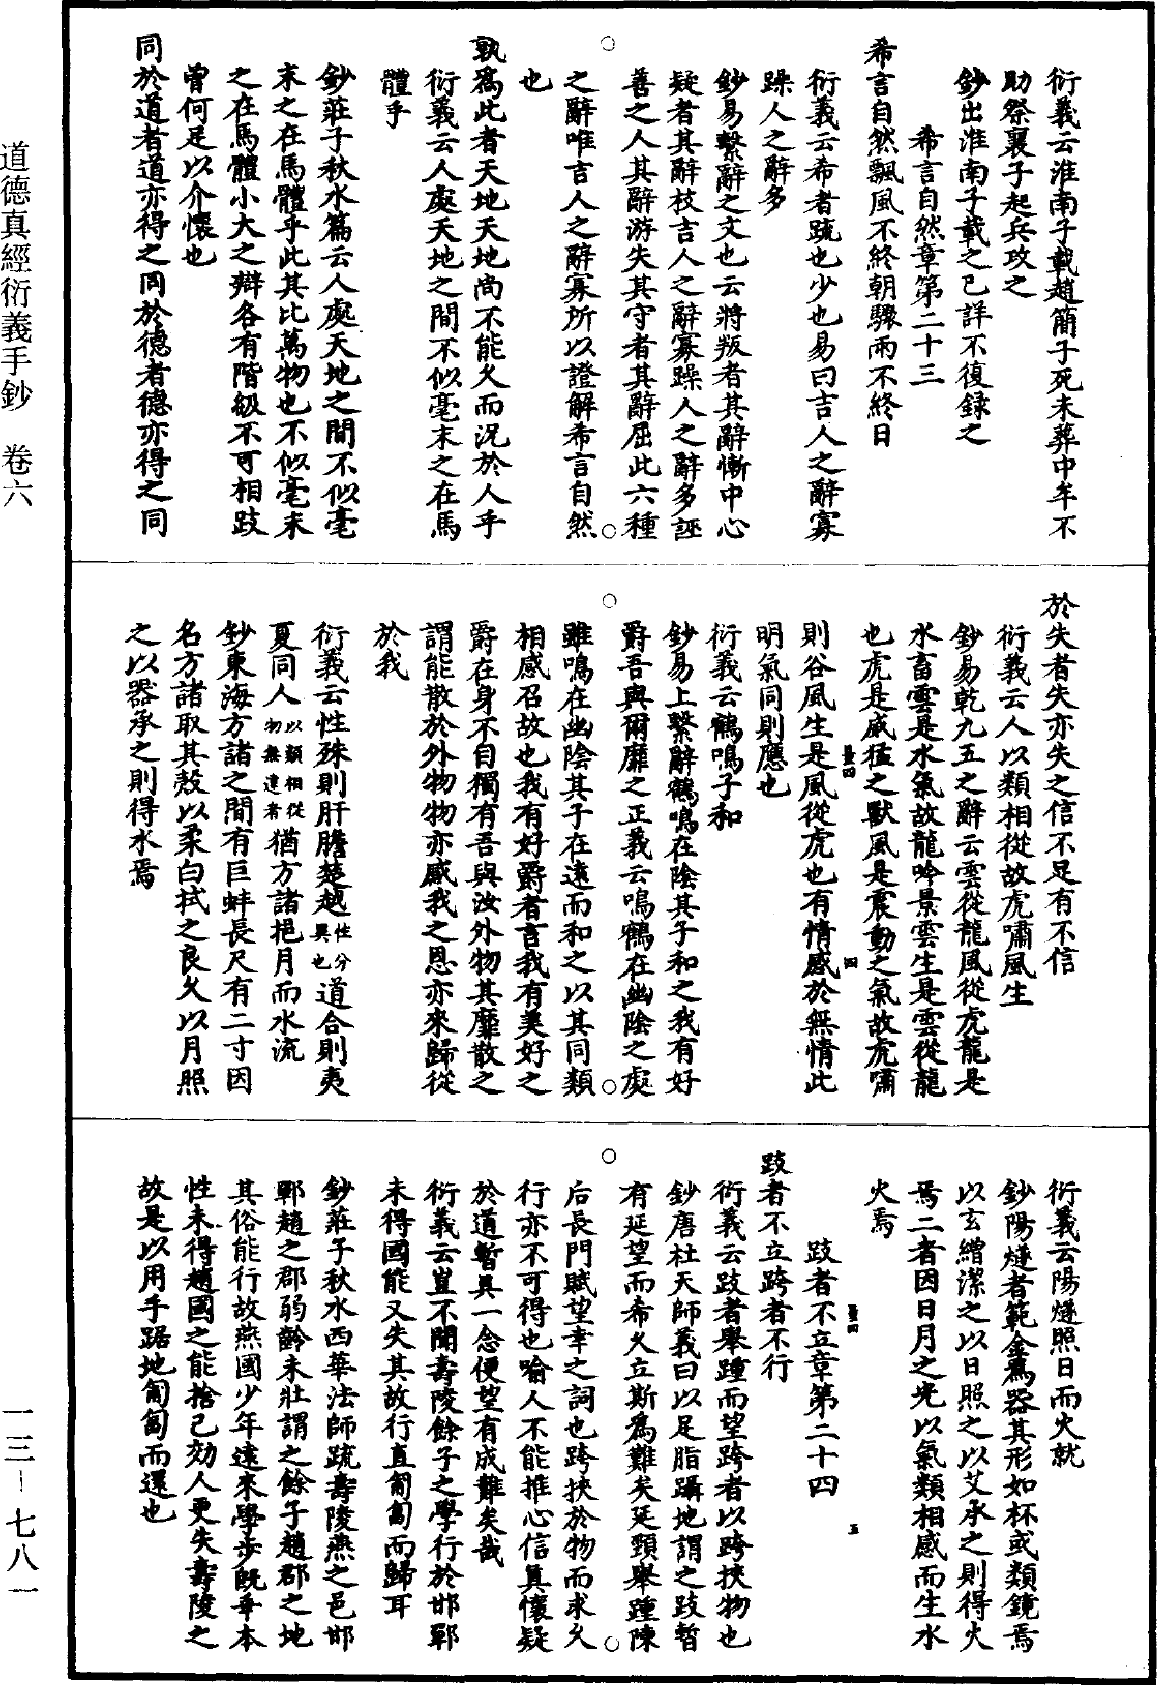 衍義云淮南子載趙簡子死未葬中牟不
助祭襄子起兵攻之
鈔出淮南子載之已詳不復録之
希言自然章第二十三
希言自然飄風不終朝驟雨不終日
衍義云希者踈也少也易曰吉人之辭寡
躁人之辭多
鈔易繫辭之文也云將叛者其辭慚中心
疑者其辭枝吉人之辭寡躁人之辭多誣
善之人其辭游失其守者其辭屈此六種
之辭唯吉人之辭寡所以證解希言自然
也
孰爲此者天地天地尚不能久而況於人乎
衍義云人處天地之間不似毫末之在馬
體乎
鈔莊子秋水篇云人處天地之間不似毫
末之在馬體乎此其比萬物也不似毫末
之在馬體小大之辯各有階級不可相跂
曾何足以介懷也
同於道者道亦得之同於德者德亦得之同
於失者失亦失之信不足有不信
衍義云人以類相從故虎嘯風生
鈔易乾九五之辭云雲從龍風從虎龍是
水畜雲是水氣故龍吟景雲生是雲從龍
也虎是威猛之獸風是震動之氣故虎嘯
則谷風生是風從虎也有情感於無情此
明氣同則應也
衍義云鶴鳴子和
鈔易上繫辭鶴鳴在陰其子和之我有好
爵吾與爾靡之正義云鳴鶴在幽陰之處
雖鳴在幽陰其子在遠而和之以其同類
相感召故也我有好爵者言我有美好之
爵在身不自獨有吾與汝外物其靡散之
謂能散於外物物亦感我之恩亦來歸從
於我
衍義云性殊則肝膽楚越性分異也道合則夷
夏同人以類相從物無違者猶方諸挹月而水流
鈔東海方諸之間有巨蚌長尺有二寸因
名方諸取其殼以柔白拭之良久以月照
之以器承之則得水焉
衍義云陽燧照日而火就
鈔陽燧者範金爲器其形如杯或類鏡焉
以玄繒潔之以日照之以艾承之則得火
焉二者因日月之光以氣類相感而生水
火焉
跂者不立章第二十四
跂者不立跨者不行
衍義云跂者舉踵而望跨者以跨挾物也
鈔唐杜天師義曰以足脂躡地謂之跂暫
有延望而希久立斯爲難矣延頸舉踵陳
后長門賦望幸之詞也跨挾於物而求久
行亦不可得也喻人不能推心信真懷疑
於道暫具一念便望有成難矣哉
衍義云豈不聞壽陵餘子之學行於邯鄲
未得國能又失其故行直匍匐而歸耳
鈔莊子秋水西華法師疏壽陵燕之邑邯
鄲趙之郡弱齡未壯謂之餘子趙郡之地
其俗能行故燕國少年遠來學步既乖本
性未得趙國之能捨己効人更失壽陵之
故是以用手踞地匍匐而還也
道德真經衍義手鈔　卷六
一三－七八一